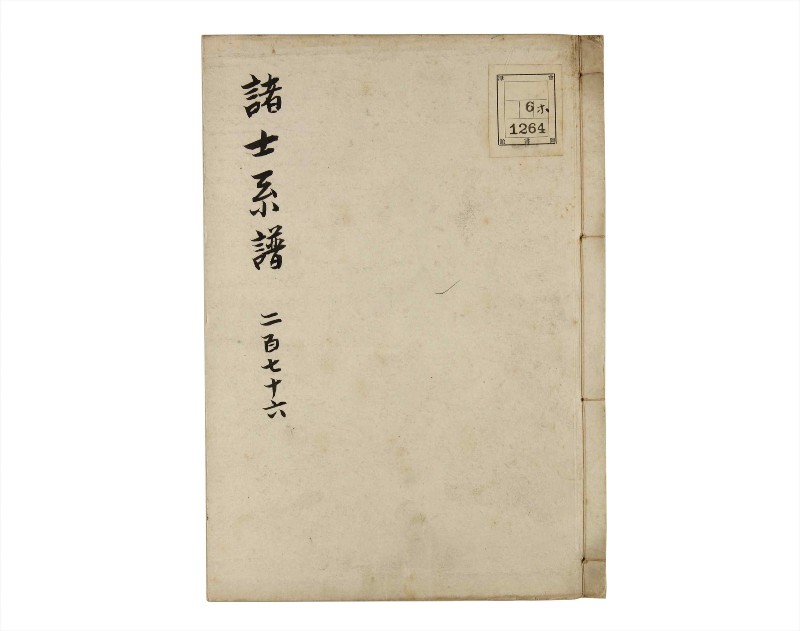 諸士系譜 二百七十六
6 ホ
1264